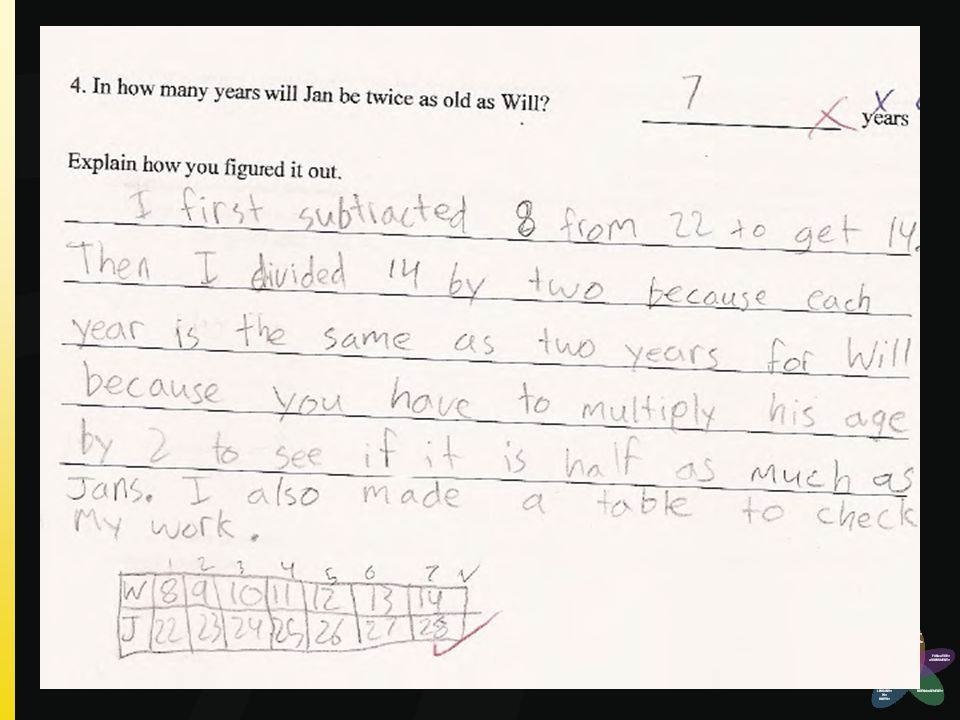 4. In how many years will Jan be twice as old as Will?
7 years
Explain how you figured it out.
I first subtracted 8 from 22 to get 14.
Then I divided 14 by two because each
year is the same as two years for Will
because you have to multiply his age
by 2 to see if it is half as much as
Jans. I also made a table to check
My work.
1 2 3 4 5 6 7
W 8 9 10 11 12 13 14
J 22 23 24 25 26 27 28